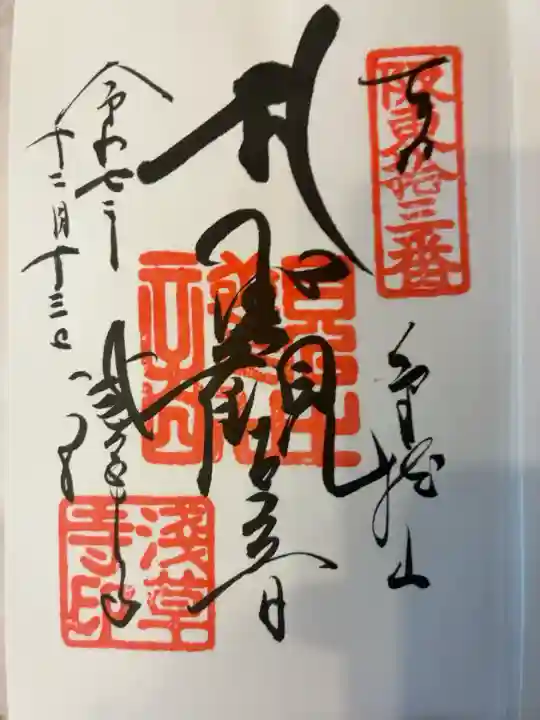 奉拝
阪東拾三番
金龍山
聖観世音
浅草寺
浅草寺印
令和七年
十二月十三日